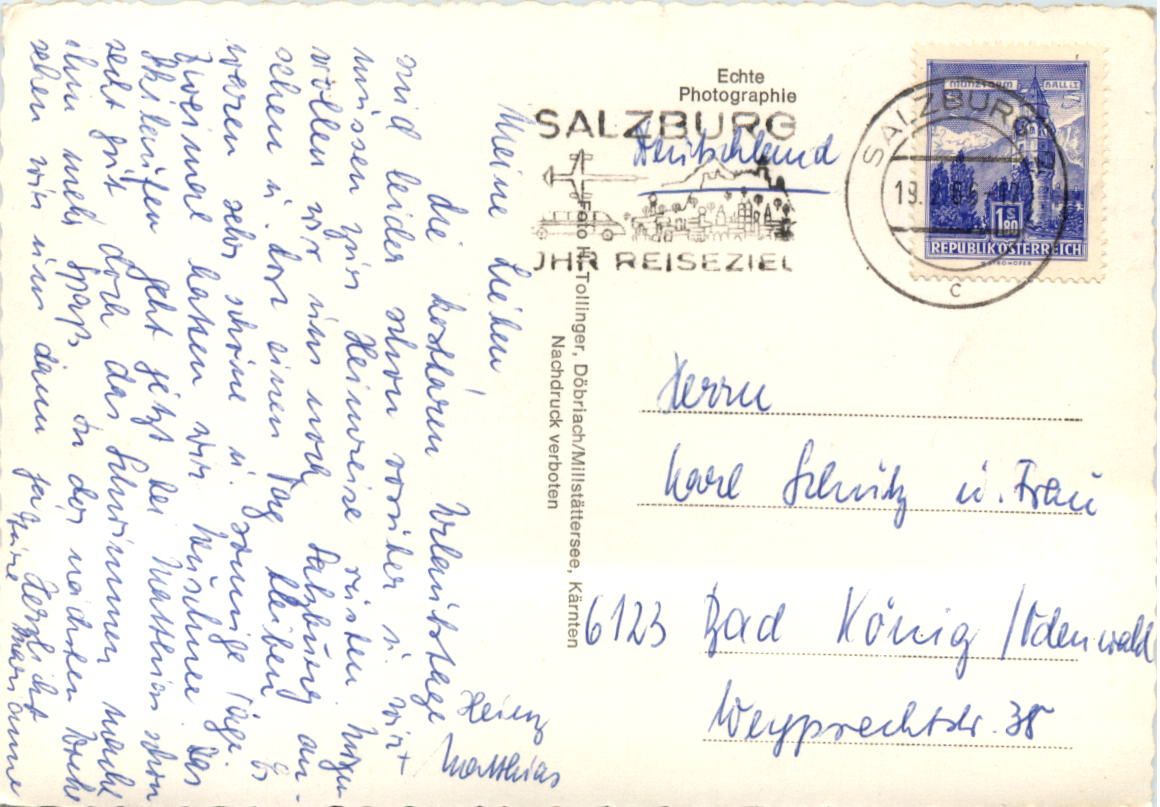 Meine Lieben!
die kostbaren Urlaubstage
sind leider schon vorüber u. wir
müssen zur Heimreise rüsten. Morgen
wollen wir uns noch Salzburg an-
sehen u. dort einen Tag bleiben. Es
waren sehr schöne u. sonnige Tage.
Zweimal hatten wir Kuschne. Das
Skilaufen geht jetzt bei Matthias schon
recht gut, doch das Schwimmen macht
ihm mehr Spaß. In der nächsten Woche
sehen wir uns dann ja. Herzlichst
Eure Marianne
Heinz
Matthias
Echte
Photographie
Foto H. Tollinger, Döbriach/Millstättersee, Kärnten
Nachdruck verboten
SALZBURG
IHR REISEZIEL
Deutschland
SALZBURG
19.
C
MÜNZTURM HALL i.T.
1 S 80
REPUBLIK ÖSTERREICH
Herrn
Karl Schütz u. Frau
6123 Bad König / Odenwald
Weyprechtstr. 38